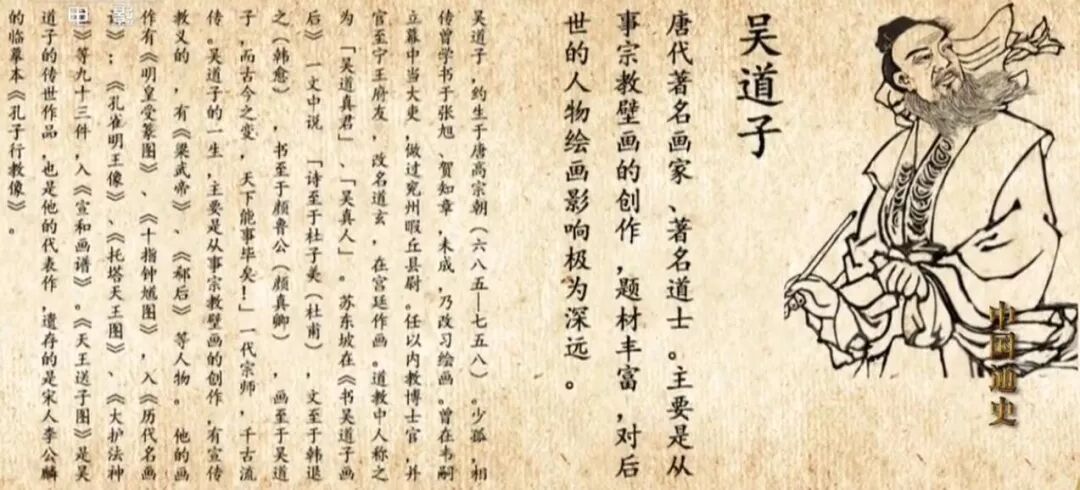 吴道子
唐代著名画家、著名道士。主要是从
事宗教壁画的创作,题材丰富,对后
世的人物绘画影响极为深远。
吴道子,约生于唐高宗朝(六八五—七五八)。少孤,相
传曾学书于张旭、贺知章,未成,乃改习绘画。曾在韦嗣
立幕中当大吏,做过兖州暇丘县尉。任以内教博士官,并
官至宁王府友,改名道玄,在宫廷作画。道教中人称之
为「吴道真君」、「吴真人」。苏东坡在《书吴道子画
后》一文中说「诗至于杜子美(杜甫),文至于韩退
之(韩愈),书至于颜鲁公(颜真卿),画至于吴道
子,而古今之变,天下能事毕矣!」一代宗师,千古流
传。吴道子的一生,主要是从事宗教壁画的创作,有宣传
教义的,有《梁武帝》、《郗后》等人物。他的画
作有《明皇受篆图》、《十指钟馗图》,入《历代名画
》;《孔雀明王像》、《托塔天王图》、《大护法神
》等九十三件,入《宣和画谱》。《天王送子图》是吴
道子的传世作品,也是他的代表作,遗存的是宋人李公麟
的临摹本《孔子行教像》。
中国通史